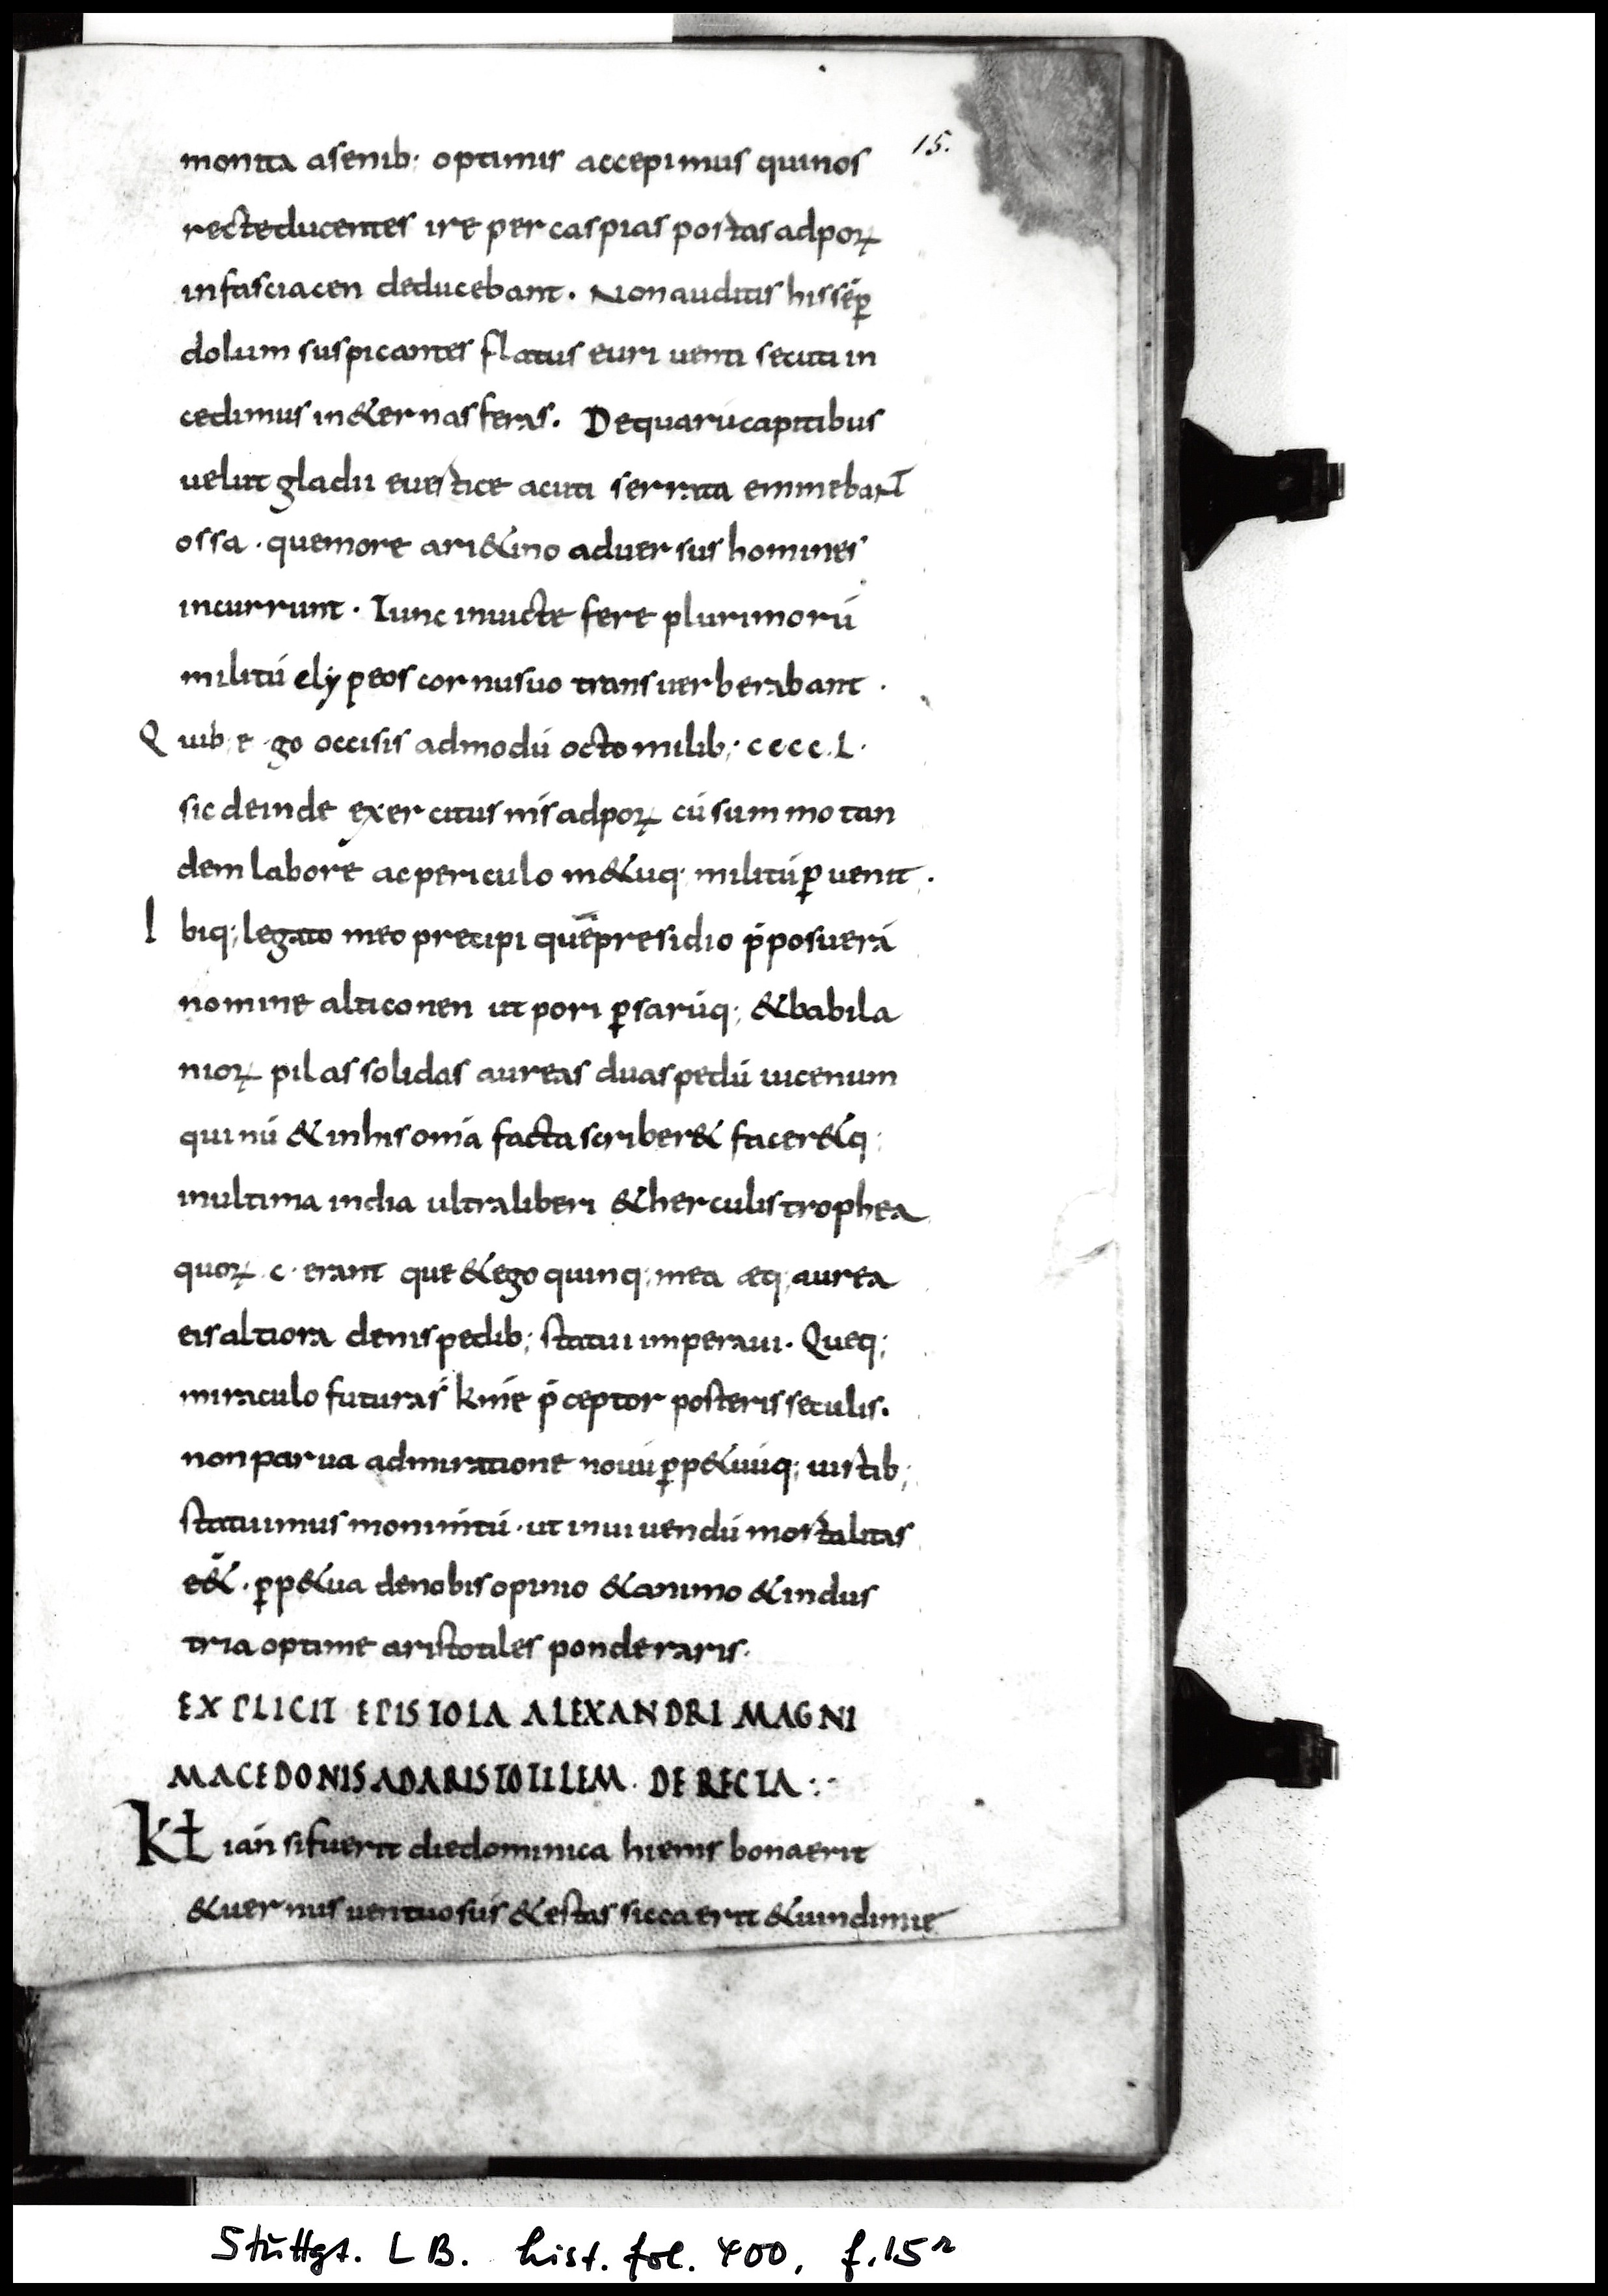 15.
monita asenib; optimis accepimus quinos
recteducentes ire per caspias portas adpoꝝ
infasciacen deducebant. Non auditis his seṕ
dolum suspicantes flatus euri uenti secuti in
cedimus in&ernas feras. Dequarū capitibus
uelut gladii euertice acuti serrata eminebant
ossa · quemore ari&ino aduersus homines
incurrunt · Tunc inuicte fere plurimorū
militū clypeos cornusuo transuerberabant ·
Quib; e·go occisis admodū octo milib; · c c c c · L ·
sic deinde exercitus nr̄s adpoꝝ cū summo tan
dem labore ac periculo m&uq; militū ꝑuenit .
Ibiq; legato meo precipi quē presidio p̄posuerā
nomine alticonen ut pori ꝑsarūq; & babila
nioꝝ pilas solidas aureas duas pedū uicenum
quinū & inhis om̄ia facta scriber& facer&q;
inultima india ultraliberi & herculis trophea
quoꝝ · c · erant que & ego quinq; mea æq; aurea
eis altiora denis pedib; statui imperaui · Queq;
miraculo futura s̄ kr̄me p̄ceptor posteris seculis.
non parua admiratione nouū ꝑp&uūq; uirtib;
statuimus monim̄tū · ut inuiuendū mortalitas
e&̄ · ꝑp&ua denobis opinio & animo & indus
tria optime aristotiles ponderaris ·
EXPLICIT EPISTOLA ALEXANDRI MAGNI
MACEDONIS AD ARISTOTILEM · DE RECTA :·
Kł ian̄ si fuerit die dominica hiems bona erit
& uernus uentuosus & estas sicca erit & uindimie
Stuttgt. LB. hist. fol. 400, f. 15r